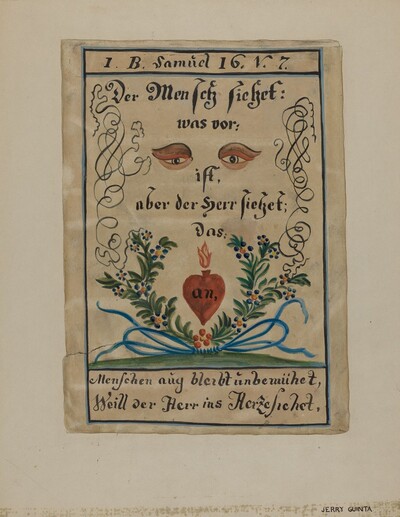 1. B. Samuel 16. V. 7.
Der Mensch siehet:
was vor:
ist,
aber der Herr siehet;
Das:
an,
Menschen aug bleibt unbemühet,
Weill der Herr ins Herze siehet,
JERRY GUINTA